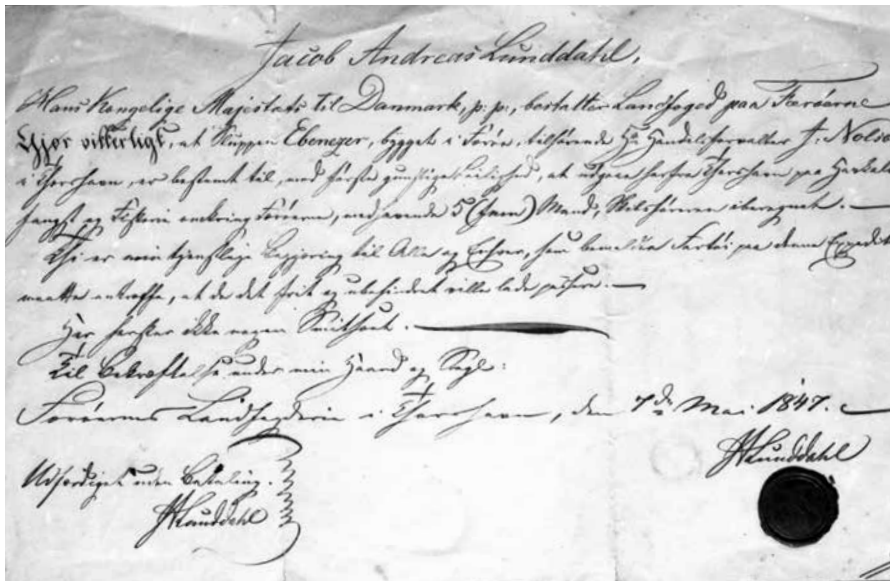 Jacob Andreas Lunddahl,
Hans Kongelige Majestæts til Danmark, p: p:, bestalter Landfoged paa Færöerne
Gjør vitterligt, at Sluppen Ebenezer, bygget i Færöe, tilhörende Hr Handelsforvalter J: Nolsö
i Thorshavn, er bestemt til, med förste gunstige Leilighed, at udgaae herfra Thorshavn paa Havkale
fangst og Fiskerie omkring Færöerne, medhavende 5 (fem) Mand, Skibsföreren iberegnet. —
Thi er min tjenstlige Begjering til Alle og Enhver, som bemeldte Fartöi paa denne Expedit
maatte antreffe, at de det frit og ubehindret ville lade passere. —
Her hersker ikke nogen Smitsoet. —
Til Bekræftelse under min Haand og Segl:
Færöernes Landfogderie i Thorshavn, den 7de Mai 1847.
HLunddahl
Udfærdiget uden Betaling.
HLunddahl